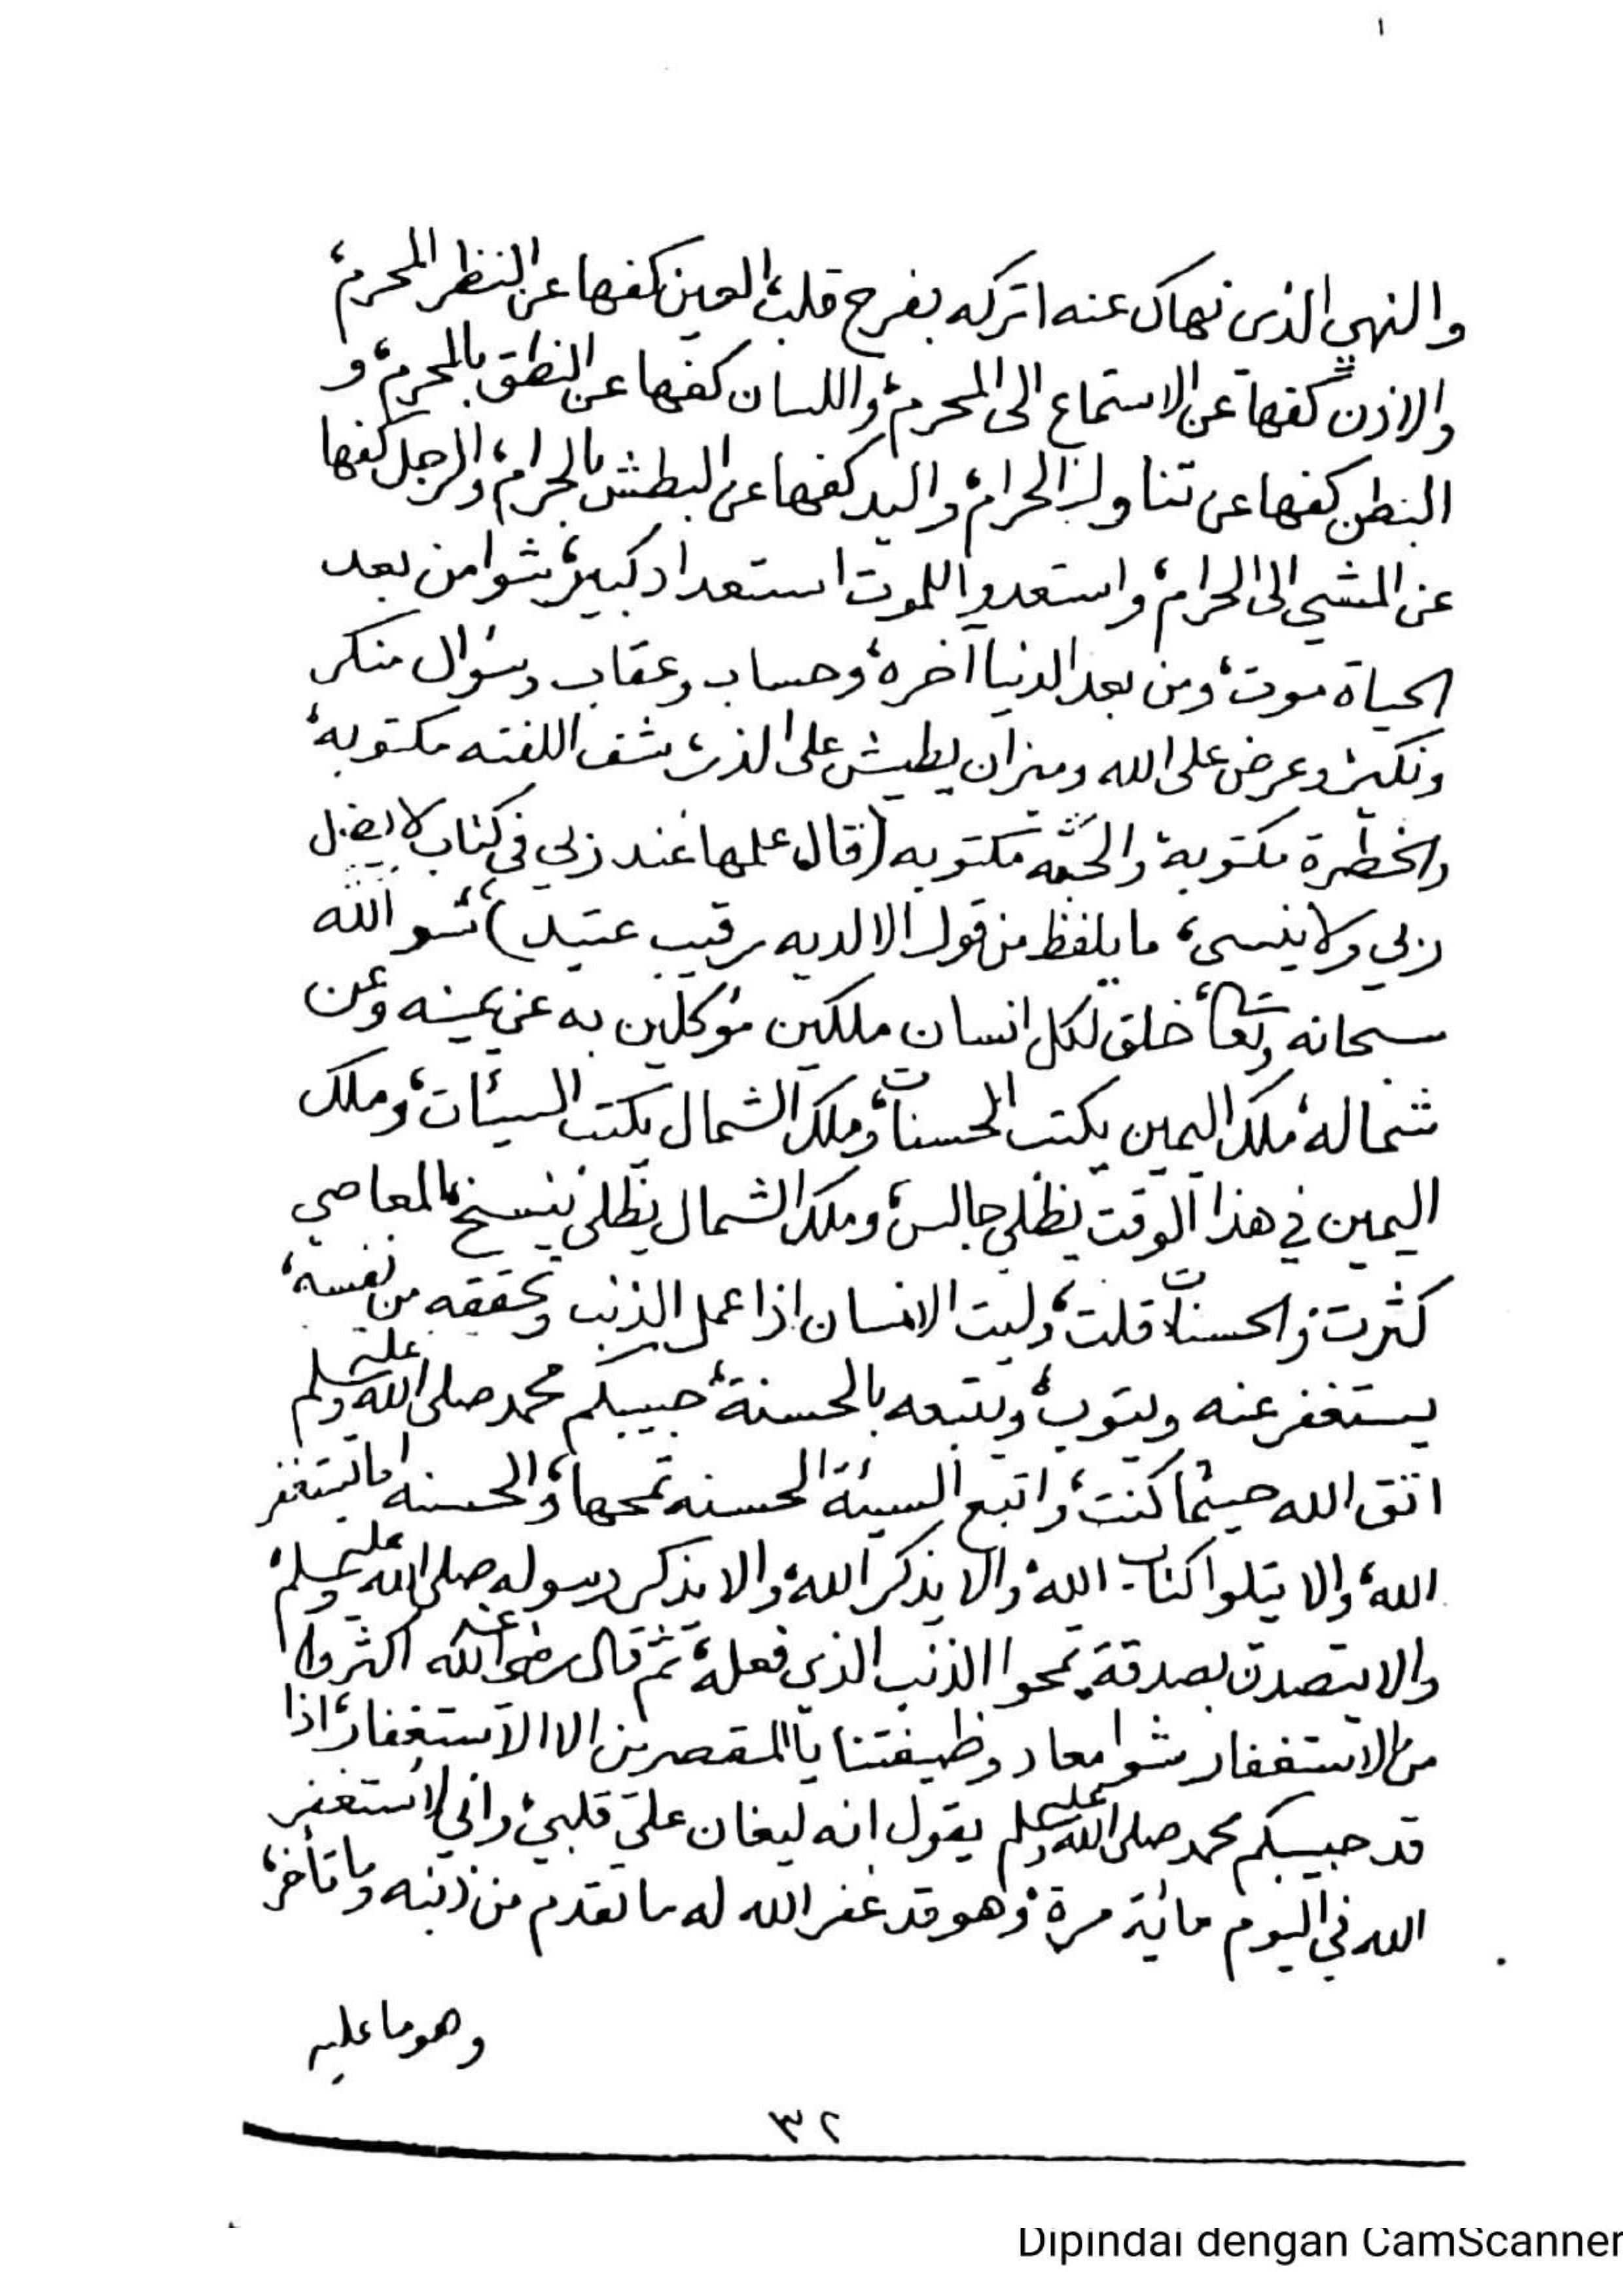 ١
والنهي الذى نهاك عنه اتركه بفرح قلب، العين كفها عن النظر المحرم،
والاذن كفها عن الاستماع الى المحرم، واللسان كفها عن النطق بالمحرم، و
البطن كفها عن تناول الحرام، واليد كفها عن البطش بالحرام، والرجل كفها
عن المشي الى الحرام، واستعدوا للموت استعداد كبير، شوا من بعد
الحياة موت، ومن بعد الدنيا آخره، وحساب وعقاب وسؤال منكر
ونكير، وعرض على الله وميزان يطيش على الذر، شف اللفته مكتوبه،
والخطرة مكتوبة، والحبه مكتوبه (قال علمها عند ربي في كتاب لا يضل
ربي ولا ينسى، ما يلفظ من قول الا لديه رقيب عتيد)، شو الله
سبحانه وتعالى، خلق لكل انسان ملكين مؤكلين به عن يمينه وعن
شماله، ملك اليمين يكتب الحسنات، وملك الشمال يكتب السيئات، وملك
اليمين في هذا الوقت يظلي جالس، وملك الشمال يظلى ينسخ، المعاصي
كثرت، والحسنات قلت، وليت الانسان اذا عمل الذنب وتحققه من نفسه،
يستغفر عنه ويتوب، ويتبعه بالحسنة، حبيبكم محمد صلى الله عليه وسلم
اتق الله حيثما كنت، واتبع السيئة الحسنه تمحها، والحسنه اما يستغفر
الله، والا يتلوا كتاب الله، والا يذكر الله، والا يذكر رسوله صلى الله عليه وسلم،
والا يتصدق بصدقة، تمحوا الذنب الذى فعله، ثم قال رضي الله عنه اكثروا
من الاستغفار شوا معاد وظيفتنا يا المقصرين الا الاستغفار، اذا
قد حبيبكم محمد صلى الله عليه وسلم يقول انه ليغان على قلبي، واني لاستغفر
الله في اليوم مائة مرة، وهو قد غفر الله له ما تقدم من ذنبه وما تأخر،
وهو ما عليه
٣٢
Dipindai dengan CamScanner